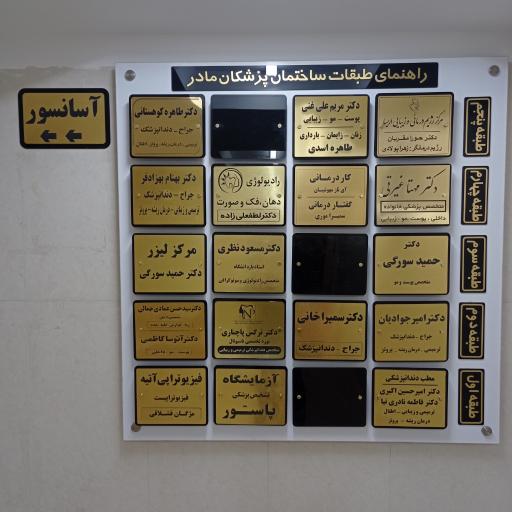 راهنمای طبقات ساختمان پزشکان مادر
آسانسور
طبقه پنجم
دکتر حورا مقربان
دکتر مریم علی غنی
پوست - مو - زیبایی
زنان - زایمان - بارداری
طاهره اسدی
دکتر طاهره کوهستانی
جراح - دندانپزشک
طبقه چهارم
دکتر مهتا غیرتی
متخصص پزشکی خانواده
داخلی، پوست، مو، زیبایی
کاردرمانی
گفتاردرمانی
رادیولوژی
دهان، فک و صورت
دکتر لطفعلی زاده
دکتر بهنام بهزادفر
جراح - دندانپزشک
طبقه سوم
دکتر
حمید سورگی
متخصص پوست و مو
دکتر مسعود نظری
استادیار دانشگاه
متخصص رادیولوژی و سونوگرافی
مرکز لیزر
دکتر حمید سورگی
طبقه دوم
دکتر امیر جوادیان
جراح - دندانپزشک
ترمیمی - درمان ریشه - پروتز
دکتر سمیرا خانی
جراح - دندانپزشک
دکتر نرگس پاچناری
دکتر سید حسن عمادی
دکتر آتوسا کاظمی
طبقه اول
مطب دندانپزشکی
دکتر امیرحسین اکبری
دکتر فاطمه نادری نیا
ترمیمی و زیبایی - اطفال
درمان ریشه - پروتز
آزمایشگاه
تشخیص پزشکی
پاستور
فیزیوتراپی آتیه
فیزیوتراپیست
مژگان قشلاقی